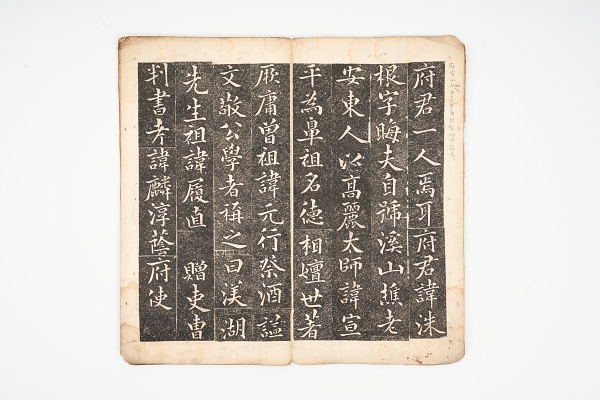 府君一人焉耳府君諱洙
根字晦夫自號溪山樵老
安東人以高麗太師諱宣
平為鼻祖名德相嬗世著
厥庸曾祖諱元行祭酒諡
文敬公學者稱之曰渼湖
先生祖諱履直 贈吏曹
判書考諱麟淳蔭府使